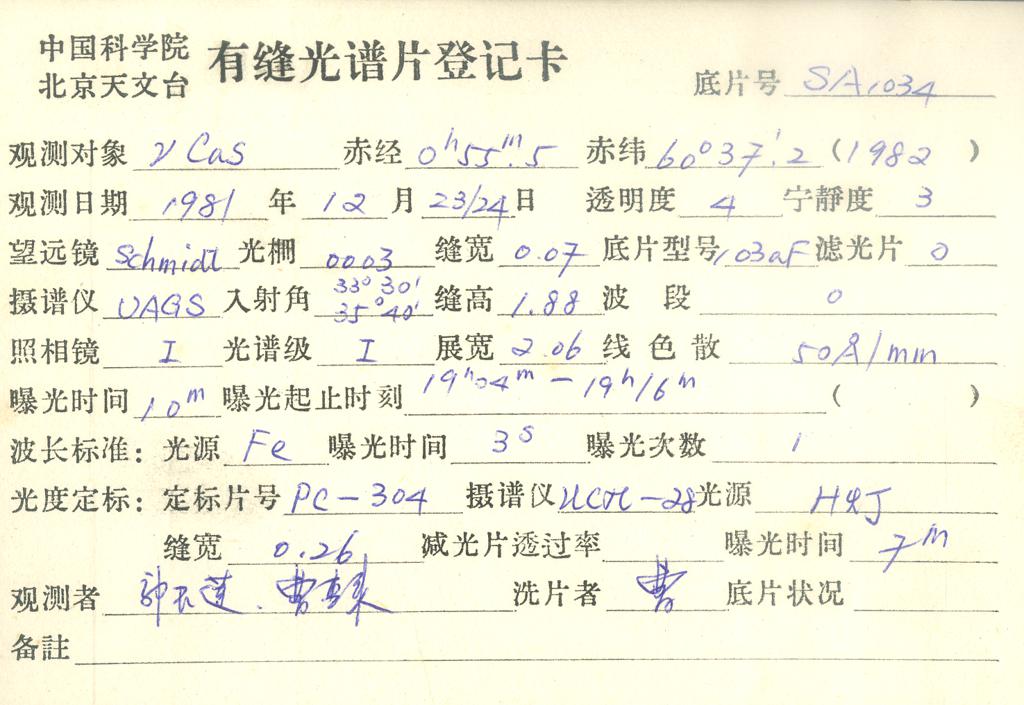 中国科学院
北京天文台
有缝光谱片登记卡
底片号 SA1034
观测对象 γ Cas 赤经 0ʰ55ᵐ.5 赤纬 60°37′.2 (1982 )
观测日期 1981 年 12 月 23/24 日 透明度 4 宁静度 3
望远镜 Schmidt 光栅 0003 缝宽 0.07 底片型号 103aF 滤光片 0
摄谱仪 UAGS 入射角 33°30′ 35°40′ 缝高 1.88 波段 0
照相镜 I 光谱级 I 展宽 2.06 线色散 50Å/mm
曝光时间 10ᵐ 曝光起止时刻 19ʰ04ᵐ — 19ʰ16ᵐ ( )
波长标准: 光源 Fe 曝光时间 3ˢ 曝光次数 1
光度定标: 定标片号 PC-304 摄谱仪 -28 光源
缝宽 0.26 减光片透过率 曝光时间 7ᵐ
观测者 洗片者 曹 底片状况
备註